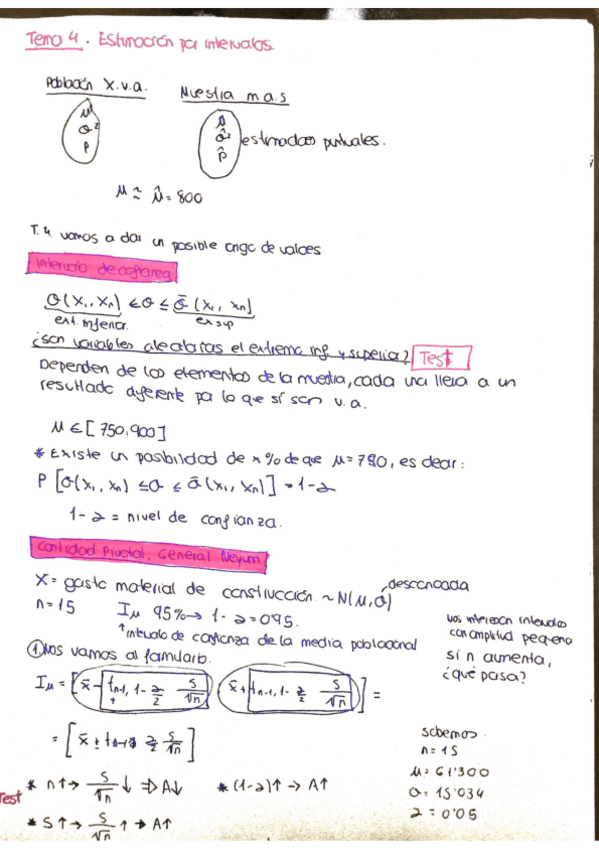 Tema 4. Estimación por intervalos.
Población X.v.a. Muestra m.a.s
μ
σ²
p
σ̂² estimadores puntuales.
p̂
μ ≈ μ̂ = 800
T.4 vamos a dar un posible rango de valores
Intervalo de confianza
θ(x₁, xₙ) ≤ θ ≤ θ̄(x₁, xₙ)
ext. inferior. ex sup
¿son variables aleatorias el extremo inf y superior? Test
Dependen de los elementos de la muestra, cada una lleva a un
resultado diferente por lo que sí son v.a.
μ ∈ [750,900]
* Existe un posibilidad de x% de que μ=780, es decir:
P [θ(x₁, xₙ) ≤ θ ≤ θ̄(x₁, xₙ)] = 1-α
1-α = nivel de confianza.
Cantidad Pivotal, General Neyman
X = gasto material de construcción ~ N(μ,σ) desconocida
n=15 Iμ 95% → 1-α=0'95.
↑ intervalo de confianza de la media poblacional
① Nos vamos al formulario.
nos interesan intervalos
con amplitud pequeña
si n aumenta,
¿qué pasa?
Iμ = [x̄ - tₙ₋₁, 1-α/2 S/√n , x̄ + tₙ₋₁, 1-α/2 S/√n] =
= [x̄ ± tₙ₋₁, α/2 S/√n]
sabemos.
n=15
μ=61'300
σ=15'034
α=0'05
Test
* n↑ → S/√n ↓ ⇒ A↓ * (1-α)↑ → A↑
* S↑ → S/√n ↑ → A↑